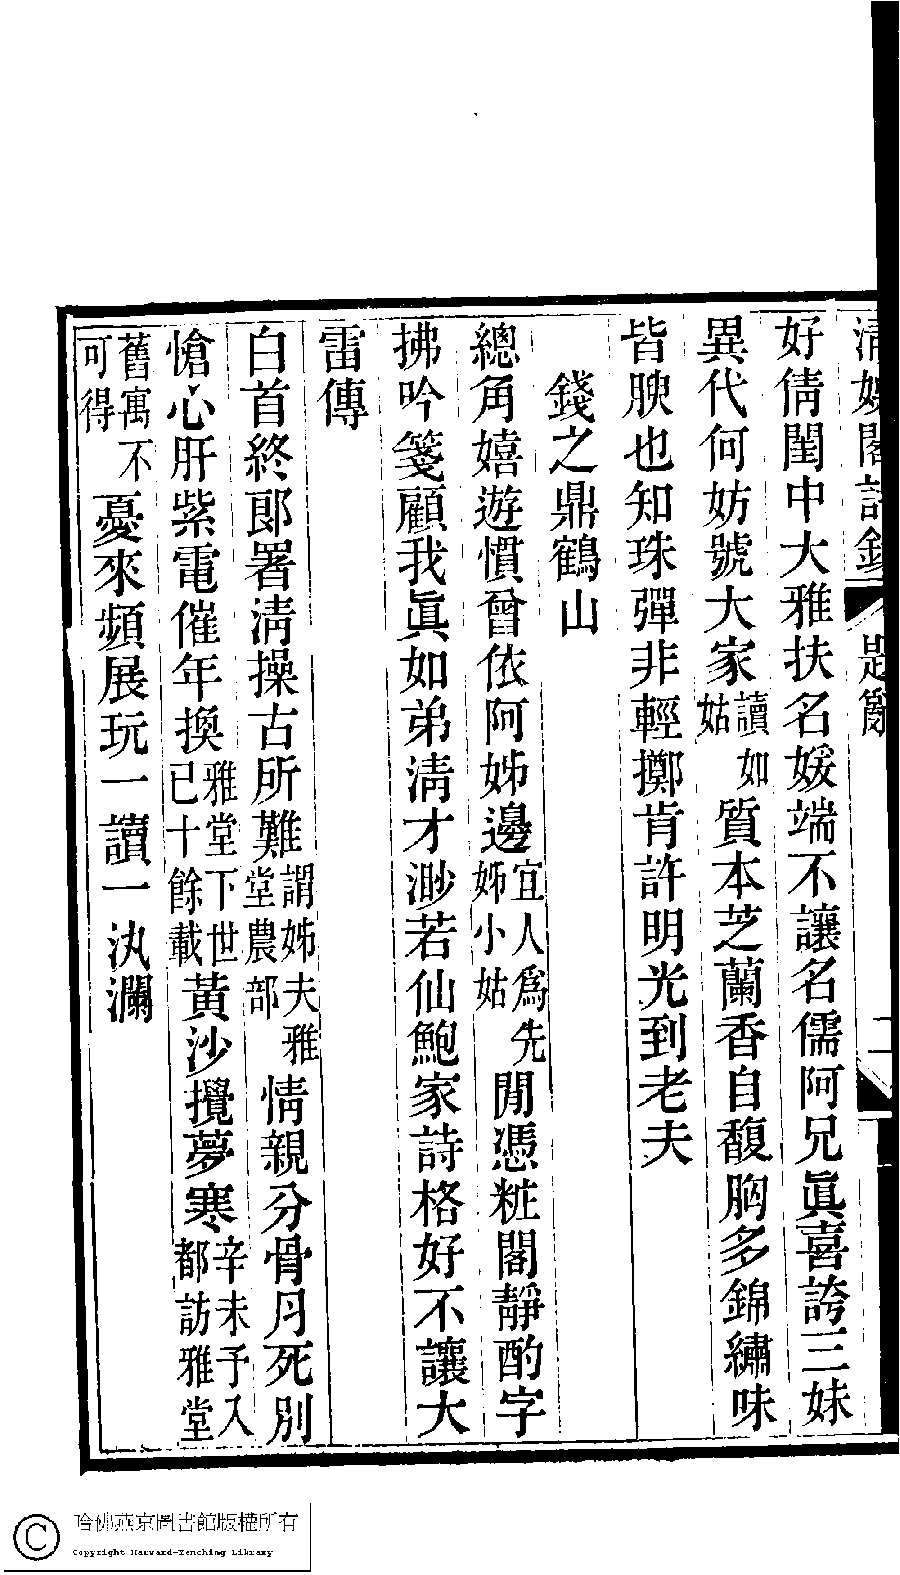 清娛閣詩鈔 題辭 二
好倩閨中大雅扶名媛端不讓名儒阿兄眞喜誇三妹
異代何妨號大家讀如姑質本芝蘭香自馥胸多錦繡味
皆腴也知珠彈非輕擲肯許明光到老夫
錢之鼎鶴山
總角嬉遊慣曾依阿姊邊宜人爲先姊小姑閒憑粧閣靜酌字
拂吟箋顧我眞如弟淸才渺若仙鮑家詩格好不讓大
雷傳
白首終郎署淸操古所難謂姊夫雅堂農部情親分骨月死別
愴心肝紫電催年換雅堂下世已十餘載黃沙攪夢寒辛未予入都訪雅堂
舊寓不可得憂來頻展玩一讀一汍瀾
哈佛燕京圖書館版權所有
Copyright Harvard-Yenching Library